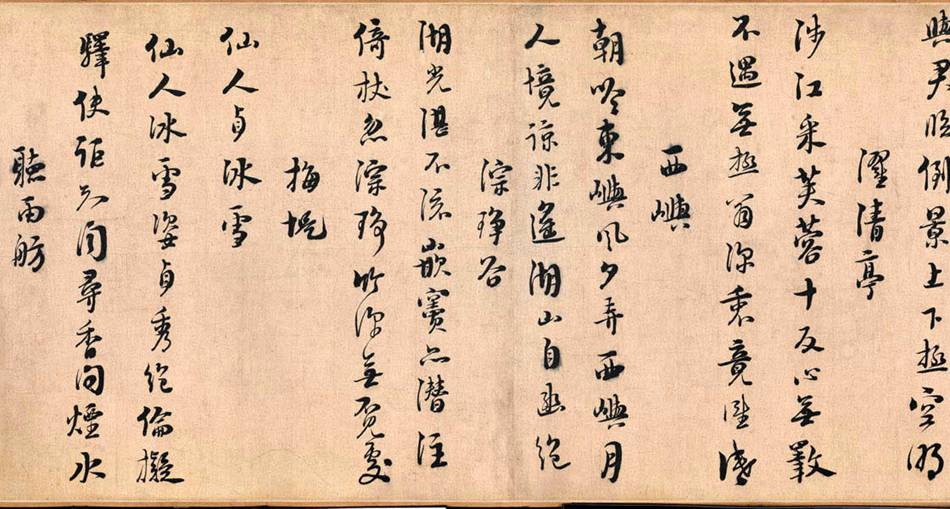 與君臨倒景上下極空明
濯清亭
涉江采芙蓉十反心無斁
不遇無極翁深衷竟誰識
西嶼
朝吟東嶼風夕弄西嶼月
人境諒非遙湖山自幽絕
淙琤谷
湖光湛不流嵌竇亦潛注
倚杖忽淙琤竹深無覓處
梅堤
仙人貞冰雪
仙人冰雪姿貞秀絕倫擬
驛使詎知聞尋香問煙水
聽雨舫